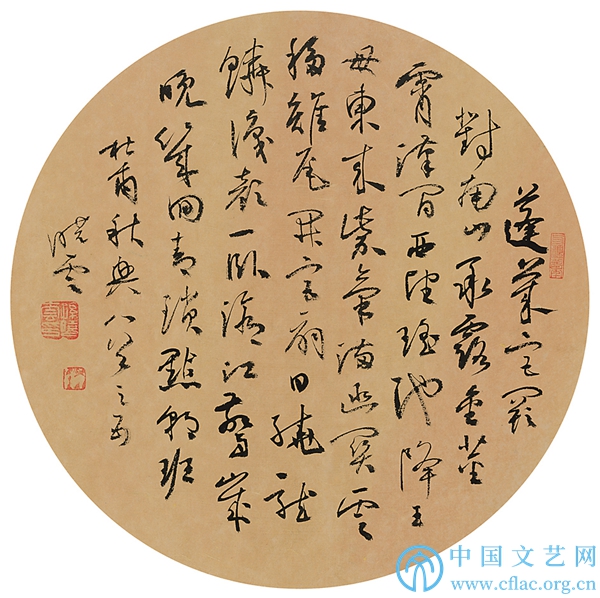 蓬萊宫闕
對南山承露金莖
霄漢间西望瑶池降王
母東来紫氣满函関雲
移雉尾開宫扇日繞龍
鱗識顔一卧滄江驚歲
晚幾回青瑣點朝班
杜甫秋興八首之五
晓雲
中国文艺网
www.cflac.org.cn